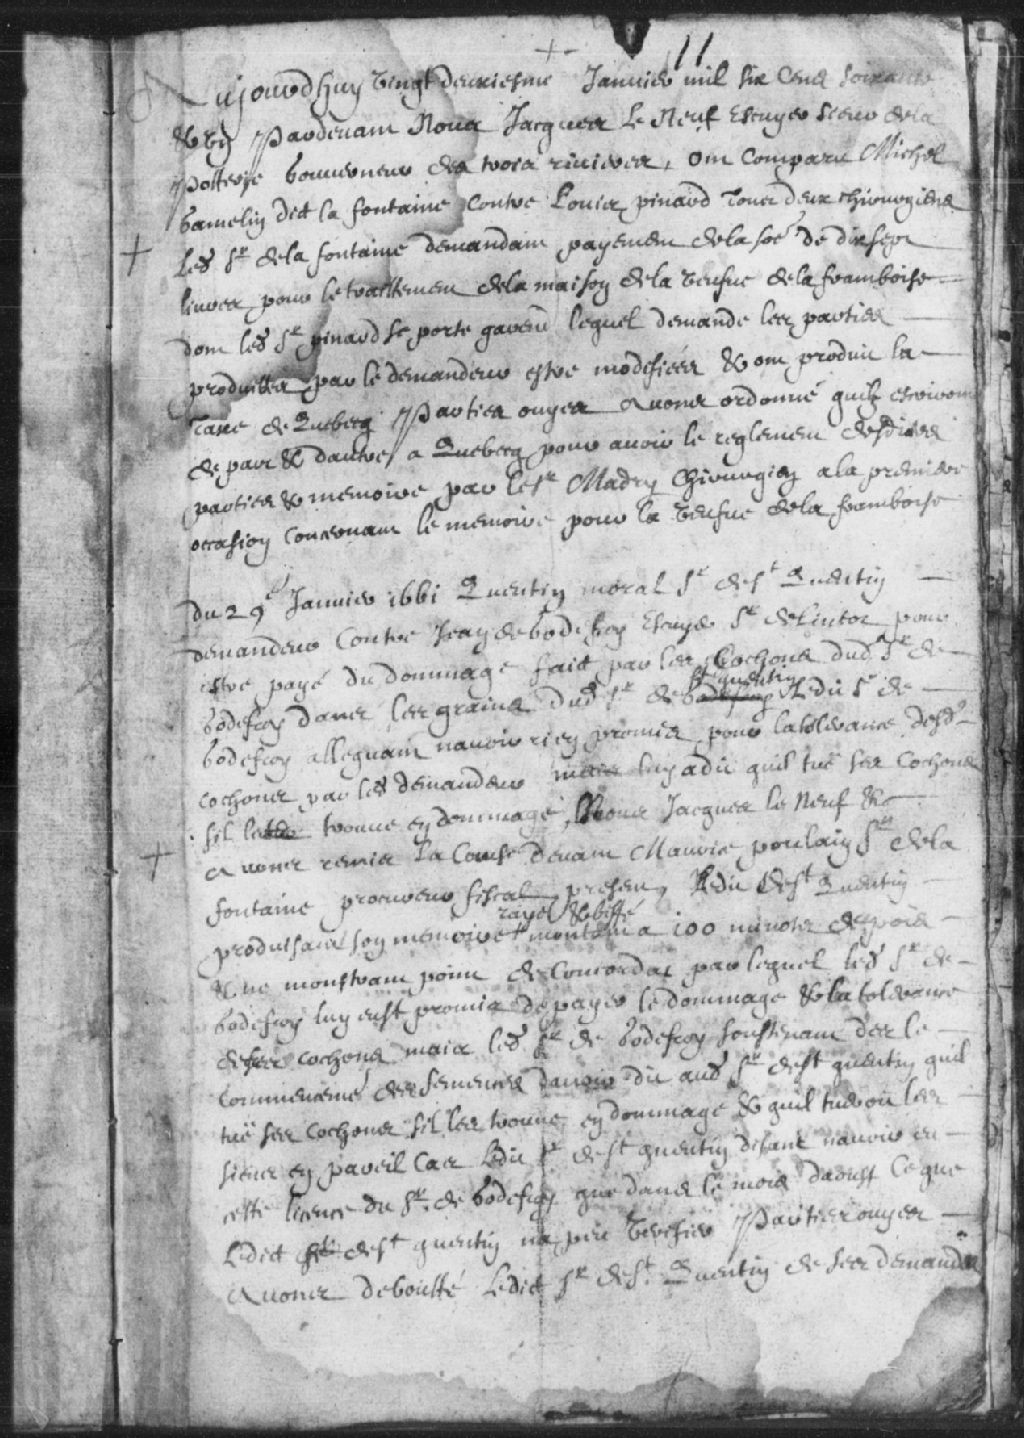 11
Aujourdhuy vingt deuxiesme Janvier mil six cens soixante
& un Pardevant Nous Jacques Le Neuf Escuyer sieur de la
Potterye Gouverneur des trois rivieres, ont comparu Michel
Gamelin dict la fontaine contre Louis pinard tous deux chirurgiens
Led Sr de la fontaine demandant payement de la soe de dix sept
livres pour le traittement de la maison de la veufve de la framboise
dont led Sr pinard se porte garend lequel demande les parties
produittes par le demandeur estre modifiées & ont produit la
Taxe de Quebecq Parties ouyes Avons ordonné quilz escriront
de part & dautre a Quebecq pour avoir le reglement desdites
parties & memoire par le Sr Madry Chirurgien a la premiere
occasion concernant le memoire pour la veufve de la framboise
du 29e Janvier 1661 Quentin moral Sr de St Quentin
demandeur Contre Jean de Godefroy Escuyer Sr de Lintot pour
estre payé du dommage fait par les Cochons dud Sr de
Godefroy dans les grains dud Sr de St quentin Ledit Sr de
Godefroy alleguant navoir rien promis pour la tolerance desd
cochons par led demandeur luy a dit quil tue ses Cochons
sil les trouve en dommage, Nous Jacques le Neuf &c
Avons remis La Cause devant Maurice poulain Sr de la
fontaine procureur fiscal present, Ledit de St Quentin
produisant son memoire rayé & biffé montant a 100 minotz de pois
& ne monstrant point de Concordat par lequel led Sr de
Godefroy luy eust promis de payer le dommage & la tolerance
de ses cochons mais led Sr de Godefroy soustenant des le
commencemt des semences davoir dit aud Sr de St quentin quil
tuë ses cochons sil les trouve en dommage & quil tueroit les
siens en pareil Cas Ledit Sr de St quentin disant navoir eu
cette licence du Sr de Godefroy que dans le mois daoust Ce que
Ledict Sr de St quentin na peu verifier Parties ouyes
Avons deboutté Ledict Sr de St Quentin de ses demandes